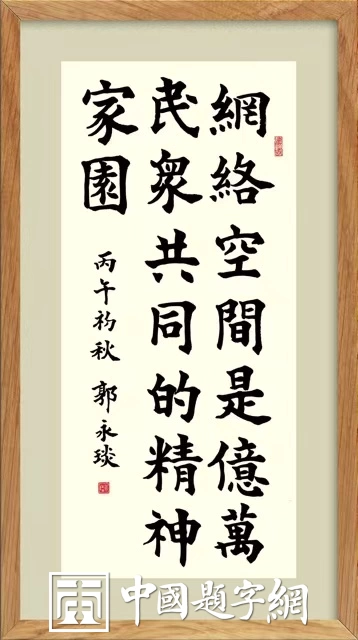 網絡空間是億萬
民眾共同的精神
家園
丙午初秋 郭永琰
中國題字網